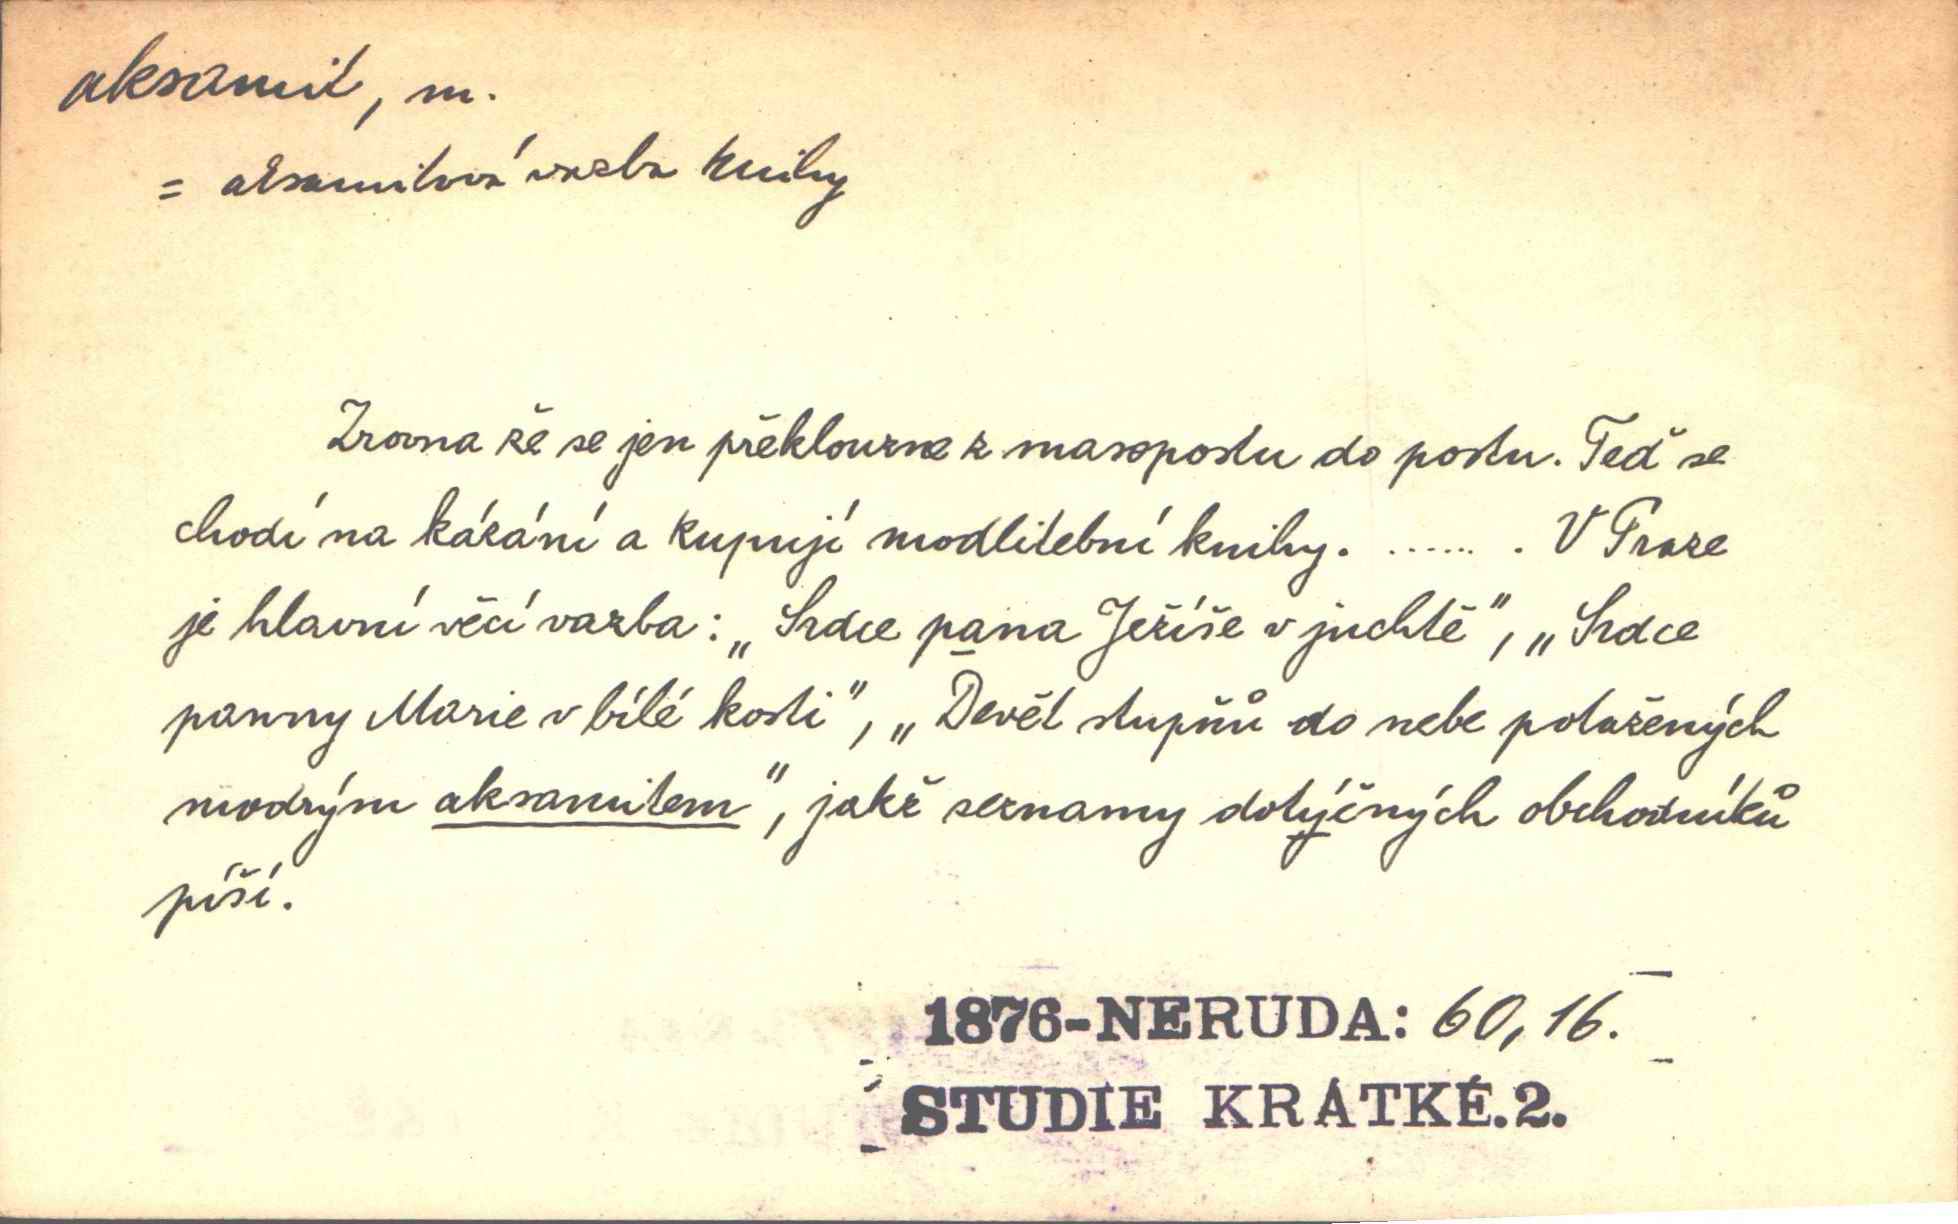 aksamit, m.
= aksamitová vazba knihy
Zrovna že se jen překlouzne z masopostu do postu. Teď se
chodí na kázání a kupují modlitební knihy. ....... V Praze
je hlavní věcí vazba: „Srdce pana Ježíše v juchtě", „Srdce
panny Marie v bílé kosti", „Devět stupňů do nebe potažených
modrým aksamitem", jakž seznamy dotýčných obchodníků
píší.
1876-NERUDA: 60, 16.
STUDIE KRÁTKÉ.2.